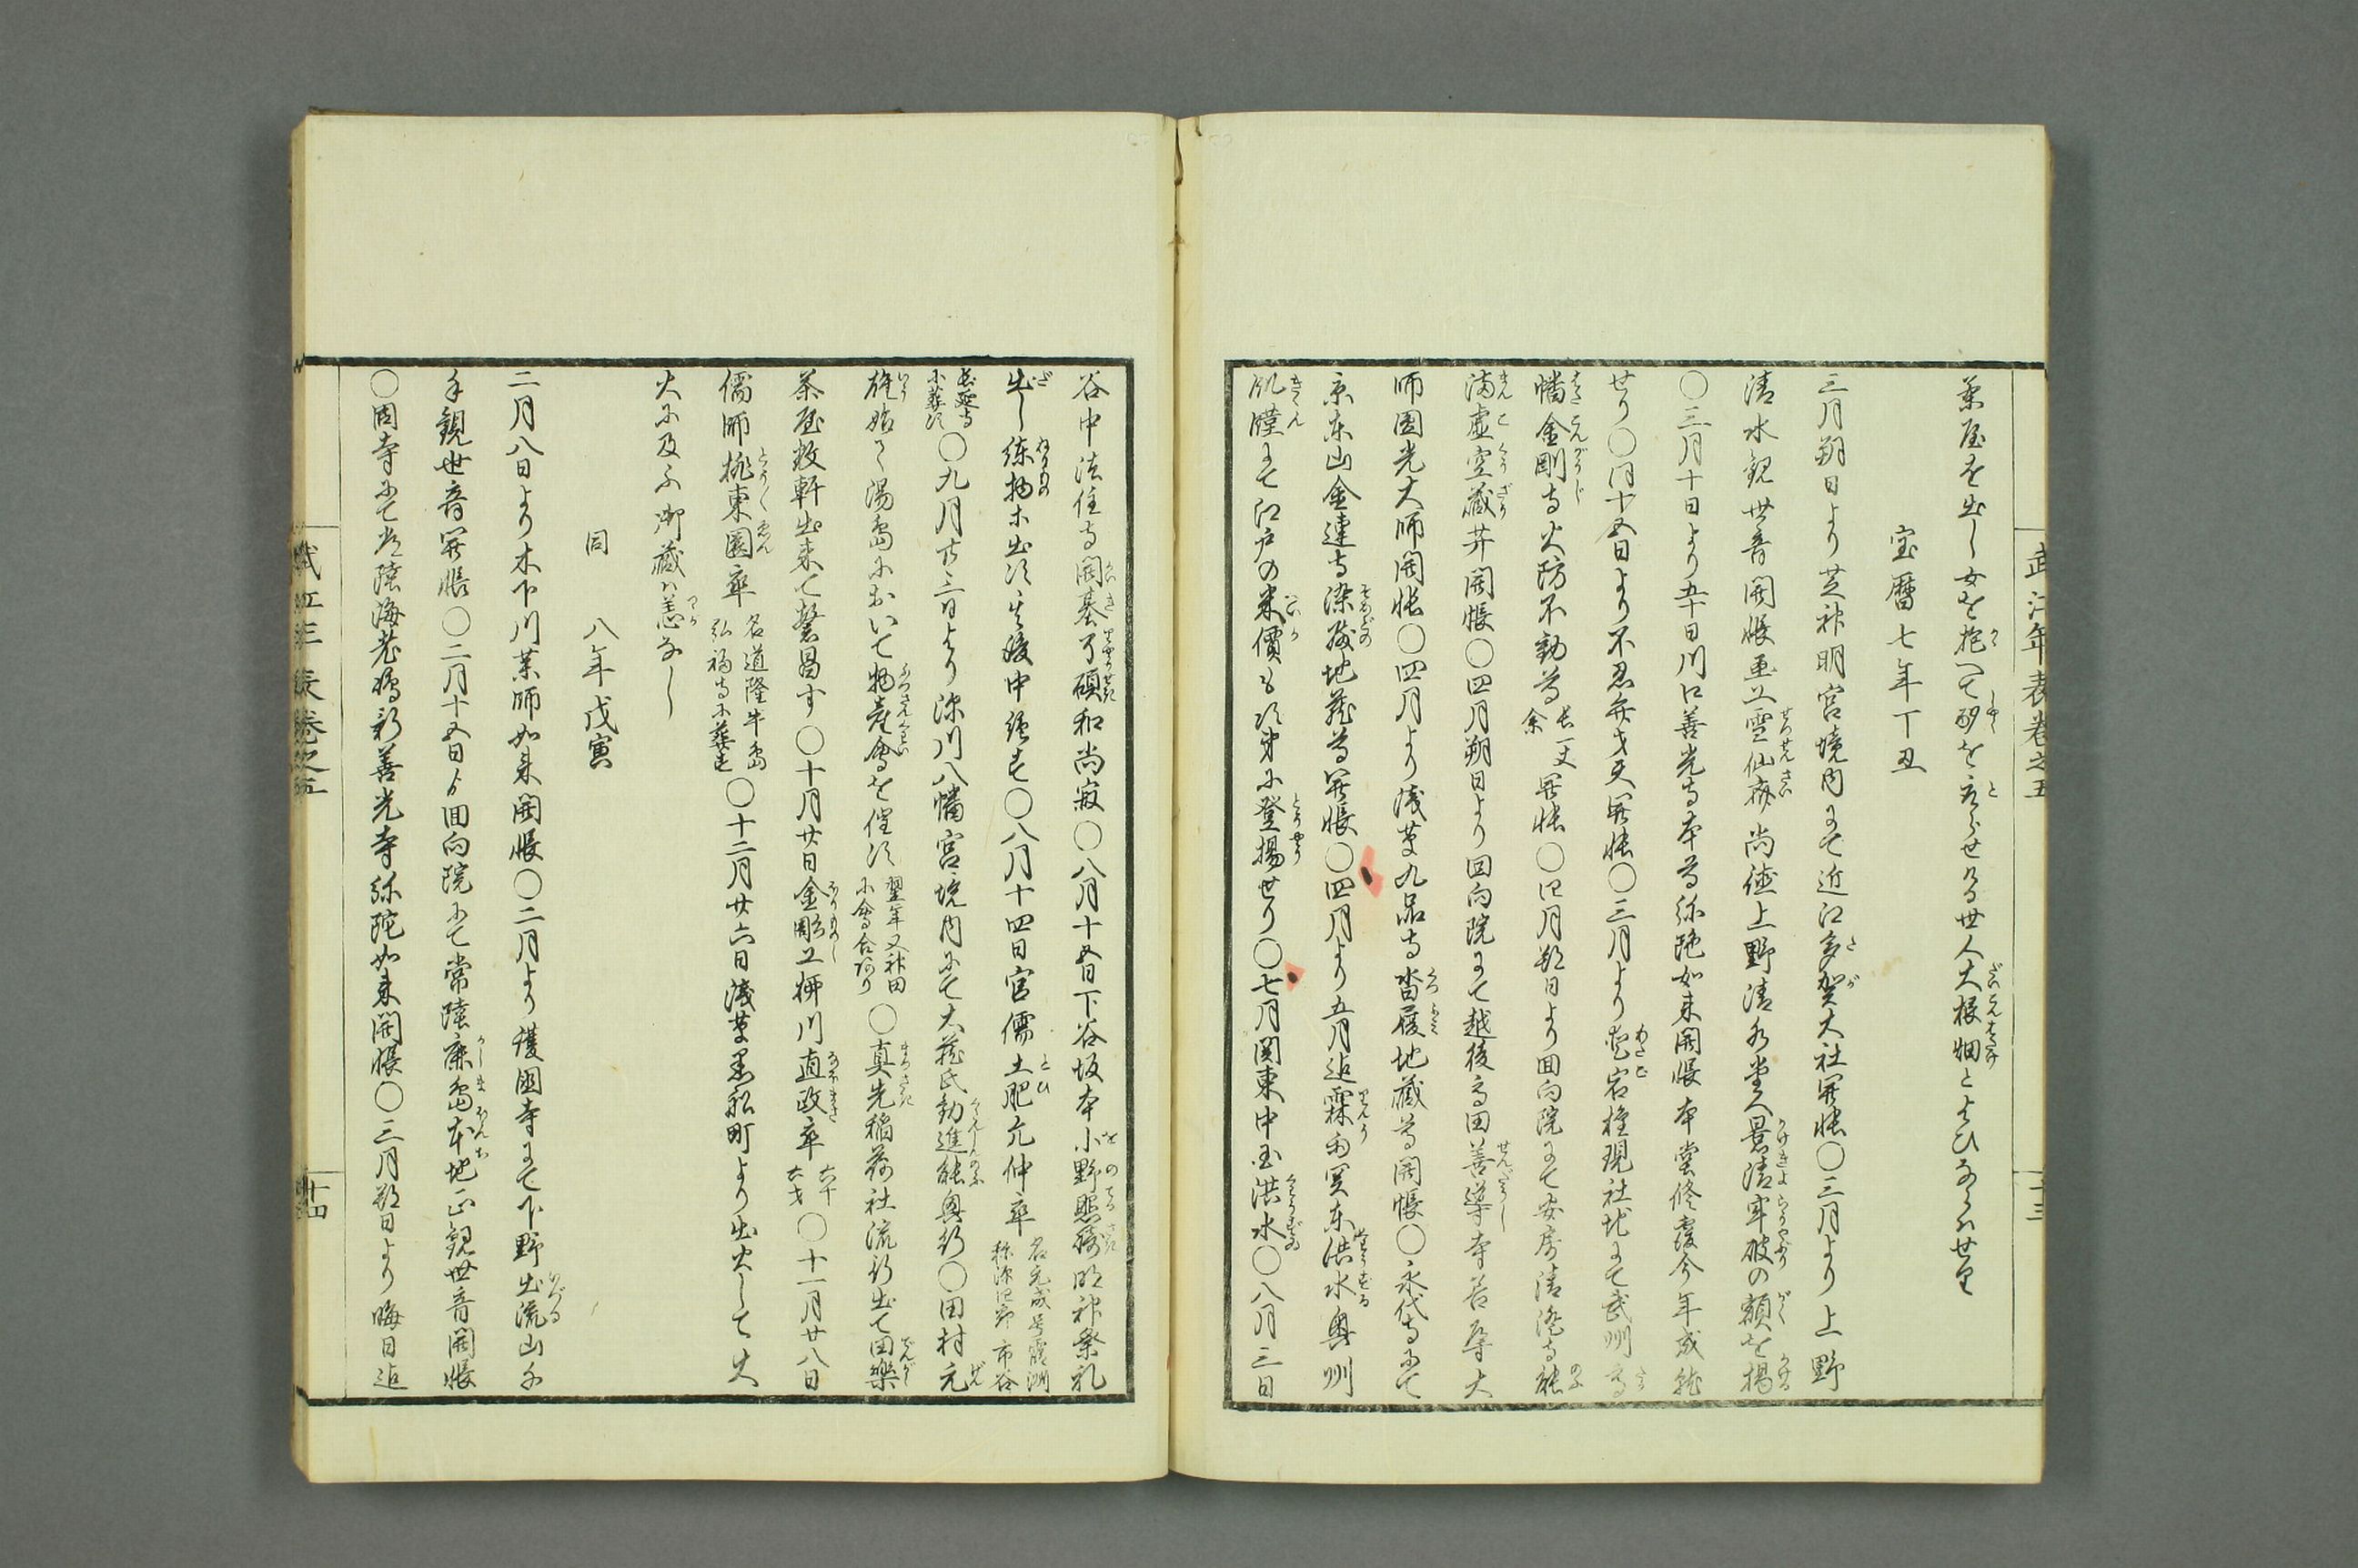 武江年表卷之五
十三
茶屋を出し女を抱へて酌をとらせける世人大根畑とよひならハせり
宝暦七年丁丑
三月朔日より芝神明宮境内にて近江多賀大社開帳〇三月より上野
清水観世音開帳画工雪仙斎尚徳上野清水堂へ景清牢破の額を揚
〇三月十日より五十日川口善光寺本尊弥陀如来開帳本堂修覆今年成就
せり〇同十五日より不忍弁才天開帳〇三月より愛宕権現社地にて武州高
幡金剛寺火防不動尊長一丈余開帳〇四月朔日より回向院にて安房清澄寺能
満虚空蔵井開帳〇四月朔日より回向院にて越後高田善導寺善導大
師圓光大師開帳〇四月より浅草九品寺沓履地蔵尊開帳〇永代寺にて
京東山金蓮寺染殿地蔵尊開帳〇四月より五月迄霖雨関東洪水奥州
飢饉にて江戸の米價も次第に登揚せり〇七月関東中国洪水〇八月三日
谷中法住寺開基了碩和尚寂〇八月十五日下谷坂本小野照崎明神祭礼
出し練物等出る其後中絶す〇八月十四日官儒土肥元仲卒名元成号霞洲称源四郎市谷
長延寺に葬す〇九月廿三日より深川八幡宮境内にて大蔵氏勧進能興行〇田村元
雄始て湯島において物産會を催す翌年又神田に會合あり〇真先稲荷社流行出て田樂
茶屋数軒出来て繁昌す〇十月廿日金彫工柳川直政卒六十六才〇十一月廿八日
儒師桃東園卒名道隆牛島弘福寺に葬す〇十二月廿六日浅草黒船町より出火して大
火に及ふ御蔵ハ恙なし
同八年戊寅
二月八日より木下川薬師如来開帳〇二月より護国寺にて下野出流山千
手観世音開帳〇二月十五日より回向院にて常陸鹿島本地正観世音開帳
〇同寺にて常陸海老嶋新善光寺弥陀如来開帳〇三月朔日より晦日迄
武江年表卷之五
十四